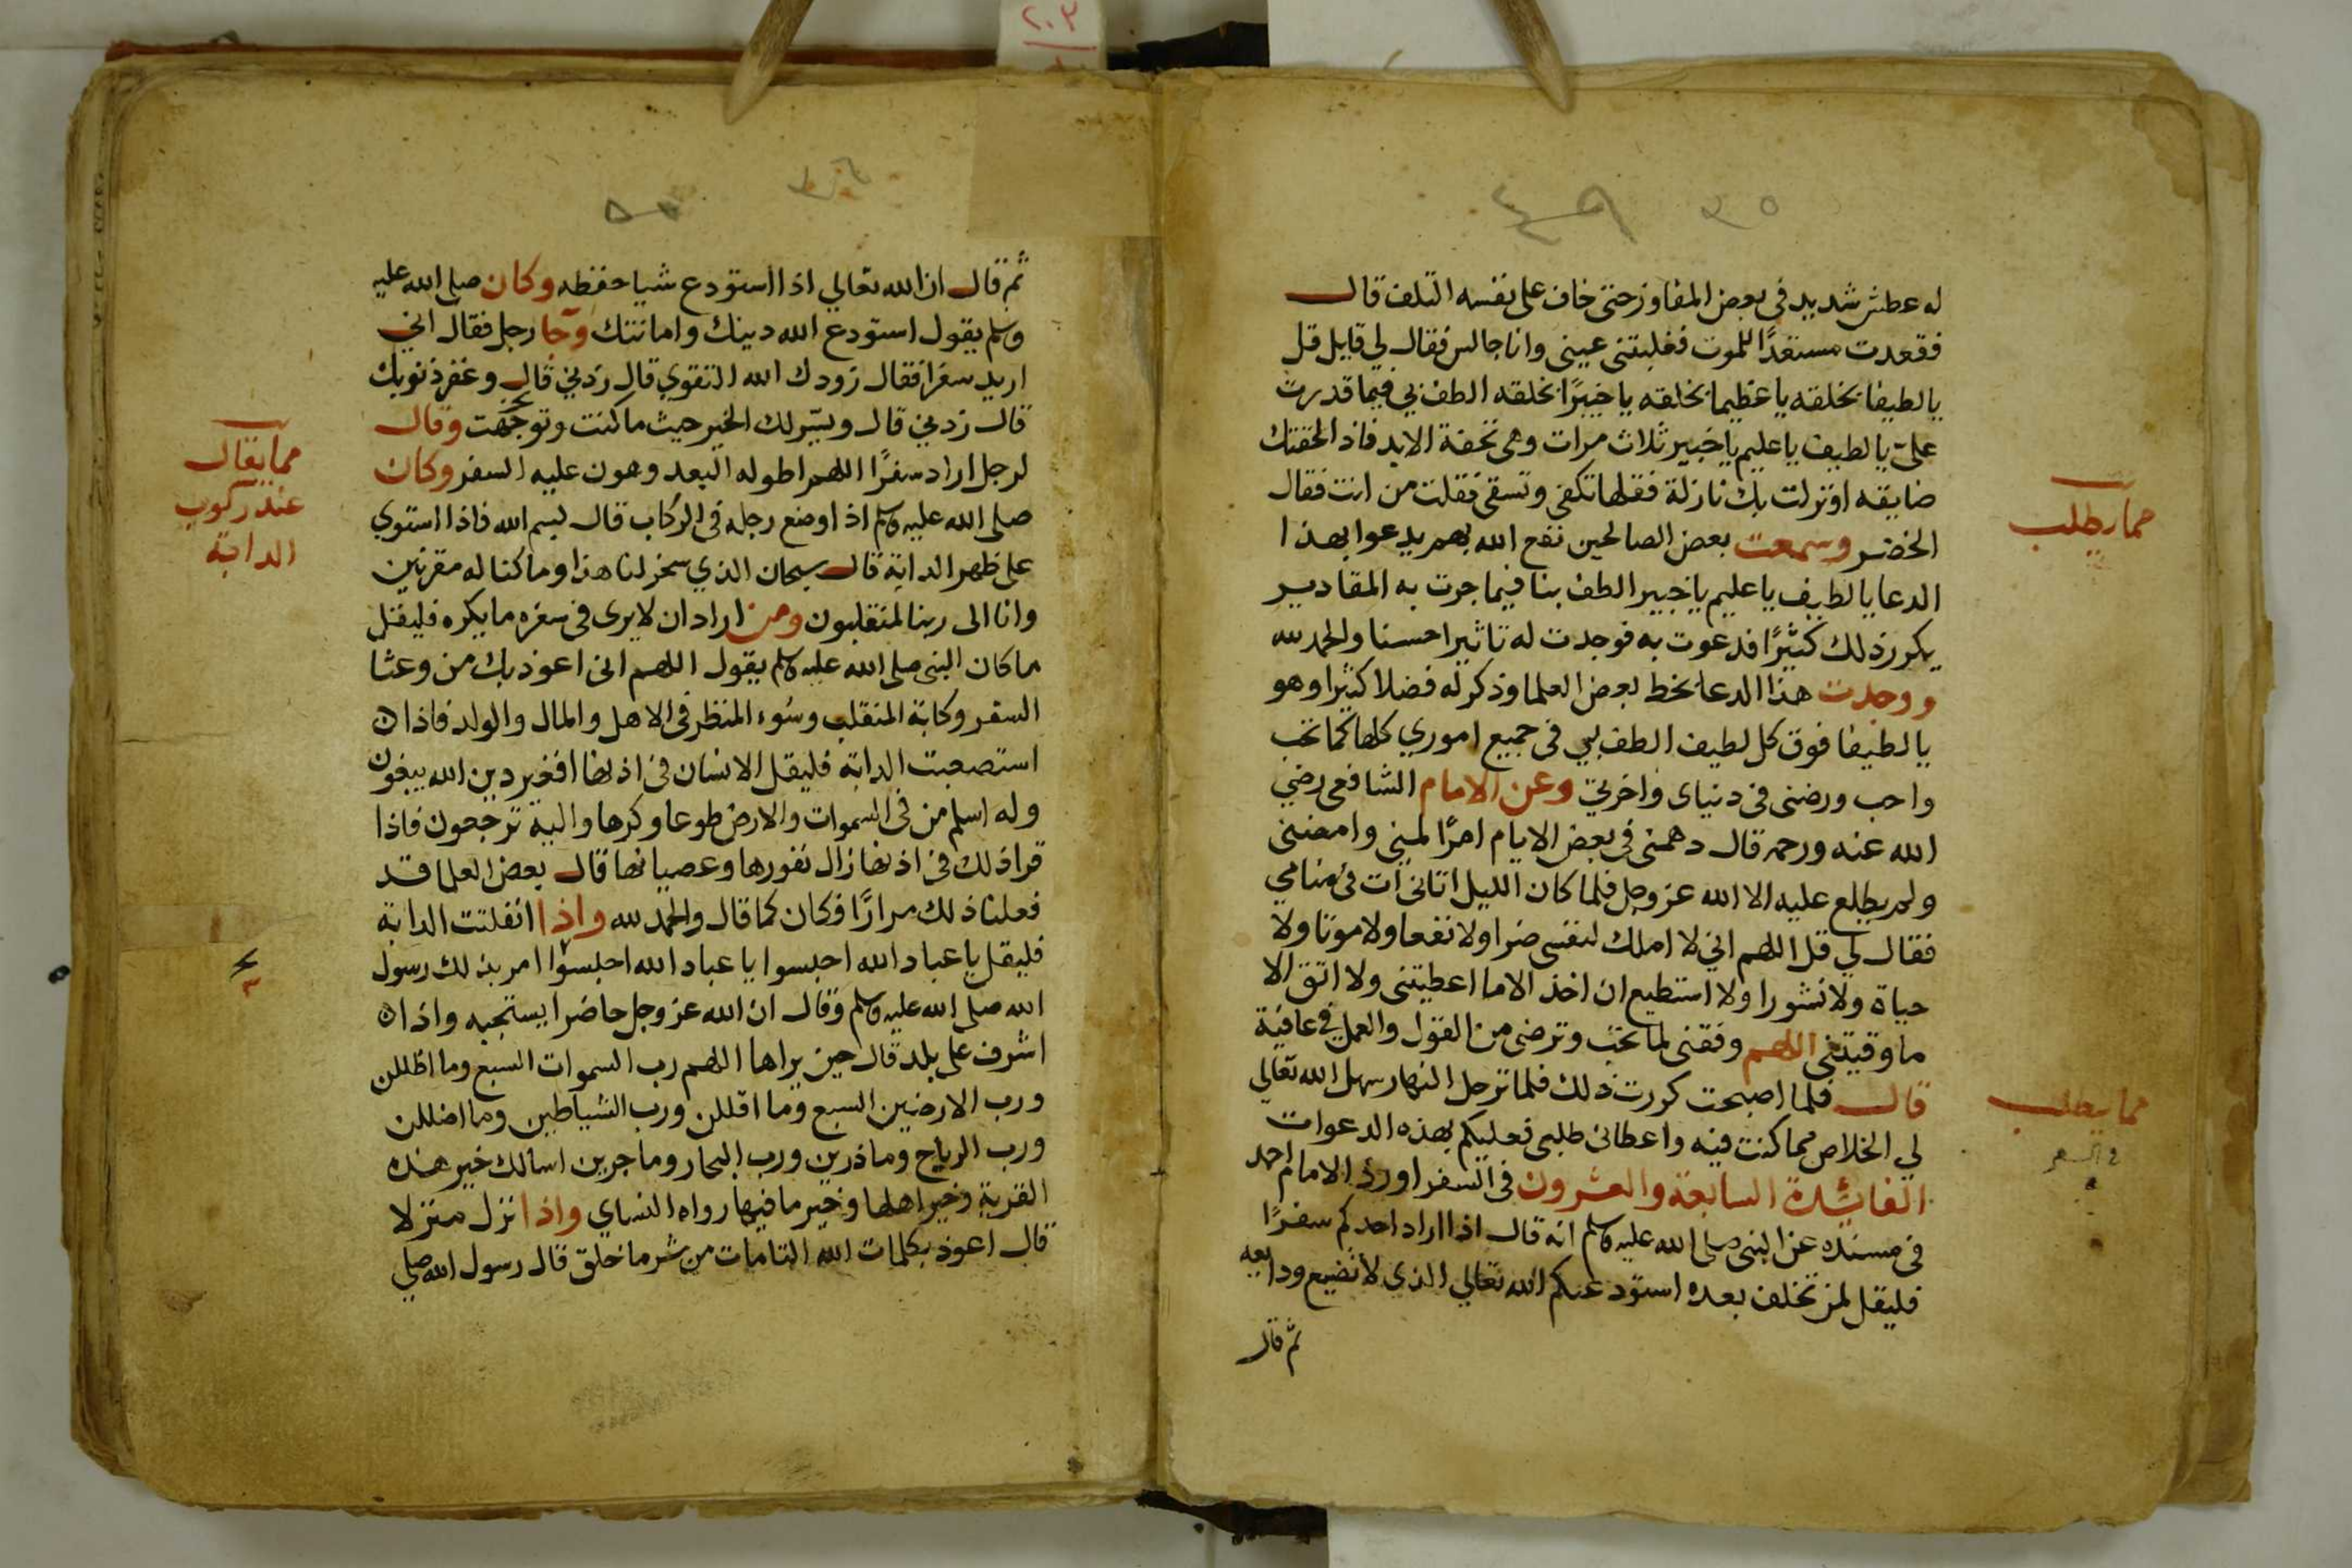 له عطش شديد في بعض المفاوز حتى خاف على نفسه التلف قال
فقعدت مستعدًا للموت فغلبتني عيني وانا جالس فقال لي قايل قل
يا لطيفا بخلقه يا عظيما بخلقه يا خبيرًا بخلقه الطف بي فيما قدرت
علىّ يا لطيف يا عليم يا خبير ثلاث مرات وهي تحفة الابد فاذا لحقتك
ضايقه او نزلت بك نازلة فقلها تكفى وتسقى فقلت من انت فقال
الخضر وسمعت بعض الصالحين نفع الله بهم يدعوا بهذا
الدعا يا لطيف يا عليم يا خبير الطف بنا فيما جرت به المقادير
يكرر ذلك كثيرًا فدعوت به فوجدت له تاثيرا حسنا والحمد لله
ووجدت هذا الدعا بخط بعض العلما وذكر له فضلا كثيرا وهو
يا لطيفا فوق كل لطيف الطف بي في جميع اموري كلها كما تحب
واحب ورضني في دنياي واخرتي وعن الامام الشافعي رضي
الله عنه ورحمه قال دهمني في بعض الايام امرًا لمني وامضني
ولم يطلع عليه الا الله عز وجل فلما كان الليل اتاني آت في منامي
فقال لي قل اللهم اني لا املك لنفسي ضرا ولا نفعا ولا موتا ولا
حياة ولا نشورا ولا استطيع ان اخذ الا ما اعطيتني ولا اتق الا
ما وقيتني اللهم وفقني لما تحب وترضى من القول والعمل في عافية
قال فلما اصبحت كررت ذلك فلما ترحل النهار سهل الله تعالي
لي الخلاص مما كنت فيه واعطاني طلبي فعليكم بهذه الدعوات
الفائدة السابعة والعشرون في السفر اورد الامام احمد
في مسنده عن النبي صلى الله عليه وسلم انه قال اذا اراد احدكم سفرًا
فليقل لمن تخلف بعده استودعتكم الله تعالي الذي لا تضيع ودايعه
ثم قال
مما يطلب
مما يطلب
في السفر
٣٥
ثم قال ان الله تعالي اذا استودع شيا حفظه وكان صلى الله عليه
وسلم يقول استودع الله دينك وامانتك وجا رجل فقال اني
اريد سفرا فقال زودك الله التقوي قال زدني قال وغفر ذنوبك
قال زدني قال ويسّر لك الخير حيث ما كنت وتوجهت وقال
لرجل اراد سفرًا اللهم اطو له البعد وهون عليه السفر وكان
صلى الله عليه وسلم اذا وضع رجله في الركاب قال بسم الله فاذا استوي
على ظهر الدابة قال سبحان الذي سخر لنا هذا وما كنا له مقرنين
وانا الى ربنا لمنقلبون ومن اراد ان لا يرى في سفره ما يكره فليقل
ما كان النبي صلى الله عليه وسلم يقول اللهم اني اعوذ بك من وعثا
السفر وكابة المنقلب وسُوء المنظر في الاهل والمال والولد فاذا ان
استصعبت الدابة فليقل الانسان في اذنها افغير دين الله يبغون
وله اسلم من في السموات والارض طوعا وكرها واليه ترجعون فاذا
قرا ذلك في اذنها زال نفورها وعصيانها قال بعض العلما قد
فعلنا ذلك مرارًا فكان كما قال والحمد لله واذا انفلتت الدابة
فليقل يا عباد الله احبسوا يا عباد الله احبسوا امر بذلك رسول
الله صلى الله عليه وسلم وقال ان الله عز وجل حاضرا يستجبه واذا ان
اشرف على بلد قال حين يراها اللهم رب السموات السبع وما اظللن
ورب الارضين السبع وما اقللن ورب الشياطين وما اضللن
ورب الرياح وما ذرين ورب البحار وما جرين اسالك خير هذه
القرية وخير اهلها وخير ما فيها رواه النساي واذا نزل منزلا
قال اعوذ بكلمات الله التامات من شر ما خلق قال رسول الله صلي
مما يقال
عند ركوب
الدابة
٣٦
٢٠٣